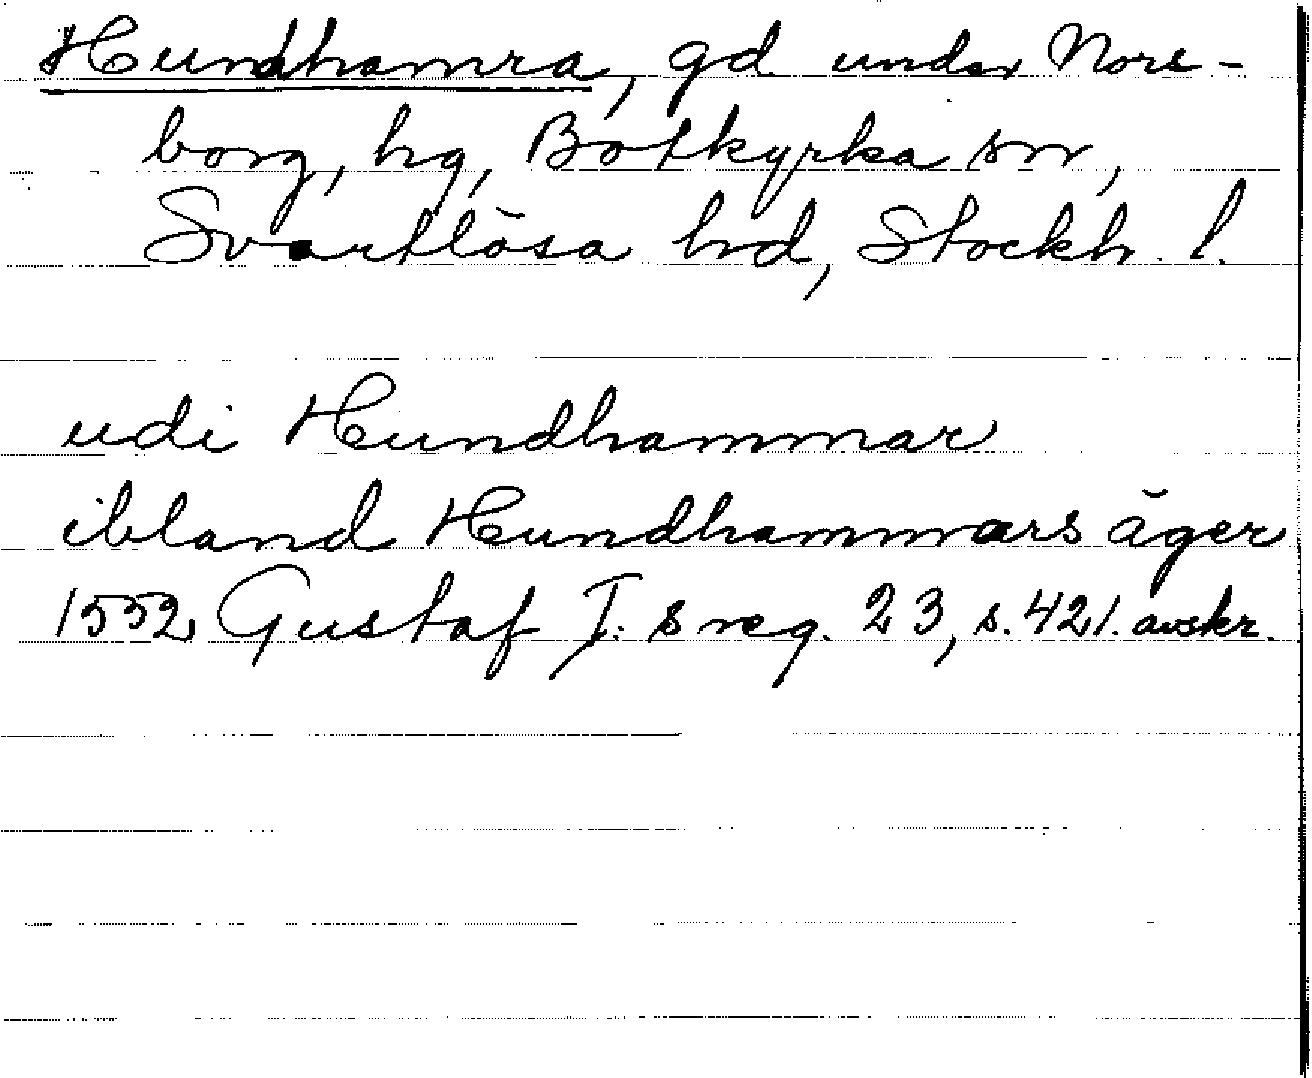 Hundhamra, gd under Nore-
borg, hg, Botkyrka sn,
Svartlösa hd, Stockh. l.
udi Hundhammar
ibland Hundhammars åger
1552 Gustaf I:s reg. 23, s. 421. avskr.